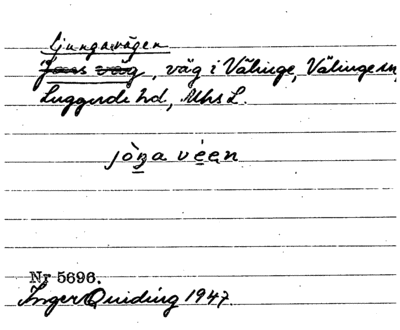 Ljungavägen
Jons väg, väg i Välinge, Välinge sn,
Luggude hd, Mhs L.
jòṉa véen
Nr 5696.
Inger Quiding 1947